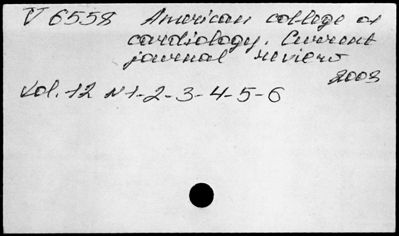 V 6558 American college of
cardiology. Current
journal review
2003
Vol. 12 N 1-2-3-4-5-6